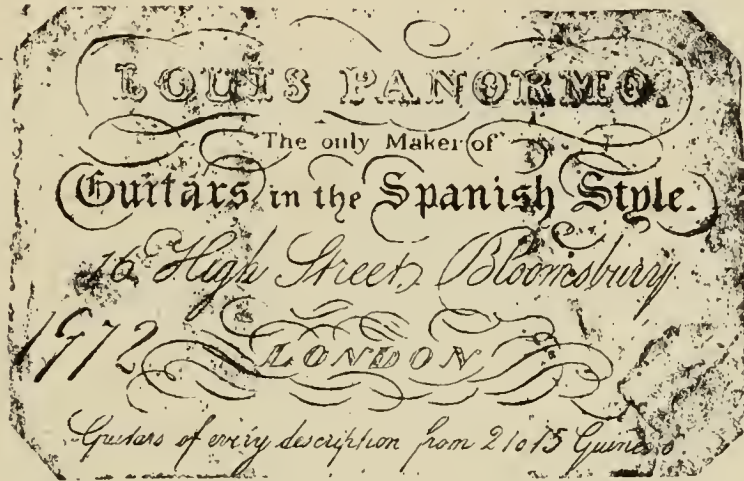 LOUIS PANORMO.
The only Maker of
Guitars in the Spanish Style.
46 High Street, Bloomsbury
1972 LONDON
Guitars of every description from 2 to 15 Guineas